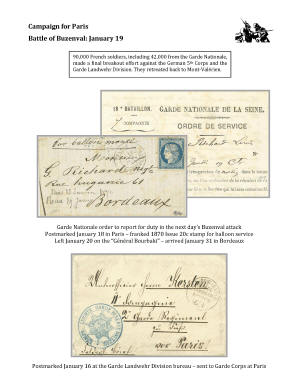 Campaign for Paris
Battle of Buzenval: January 19
90,000 French soldiers, including 42,000 from the Garde Nationale,
made a final breakout effort against the German 5th Corps and the
Garde Landwehr Division. They retreated back to Mont-Valérien.
18e BATAILLON.
GARDE NATIONALE DE LA SEINE.
COMPAGNIE
ORDRE DE SERVICE
Par ballon monté
Monsieur
G. Richard
Bordeaux
Garde Nationale order to report for duty in the next day's Buzenval attack
Postmarked January 18 in Paris – franked 1870 Issue 20c stamp for balloon service
Left January 20 on the "Général Bourbaki" – arrived January 31 in Bordeaux
Kersten
2t Garde Regiment
Paris
Postmarked January 16 at the Garde Landwehr Division bureau – sent to Garde Corps at Paris